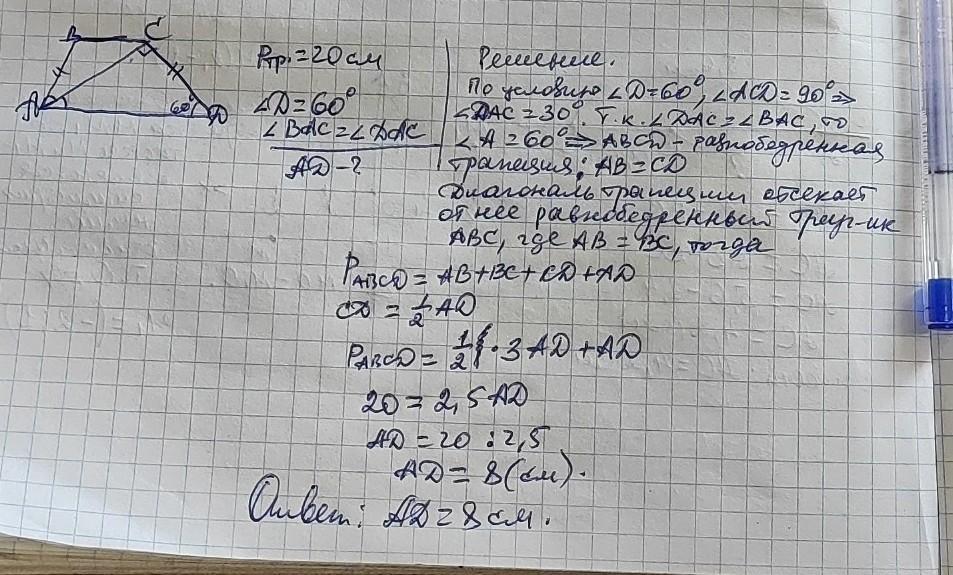 B C
A 60° D
Pтр.=20см
∠D=60°
∠BAC=∠DAC
AD-?
Решение.
По условию ∠D=60°, ∠ACD=90° ⇒
∠DAC=30°. Т.к. ∠DAC=∠BAC, то
∠A=60° ⇒ ABCD - равнобедренная
трапеция; AB=CD
Диагональ трапеции отсекает
от нее равнобедренный треуг-ик
ABC, где AB=BC, тогда
PABCD = AB+BC+CD+AD
CD = 1/2 AD
PABCD = 1/2 · 3AD+AD
20 = 2,5AD
AD = 20 : 2,5
AD = 8(см).
Ответ: AD=8см.